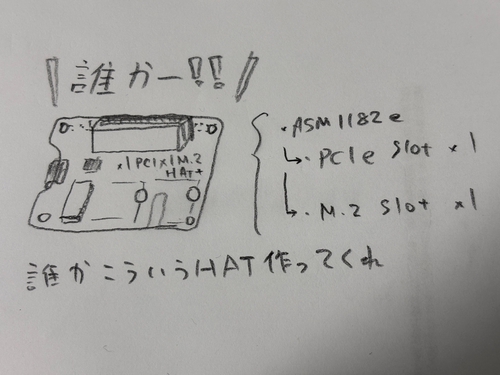 誰かー!!
×1PCI×1M.2
HAT+
・ASM1182e
↳・PCIe Slot ×1
↳・M.2 Slot ×1
誰かこういうHAT作ってくれ